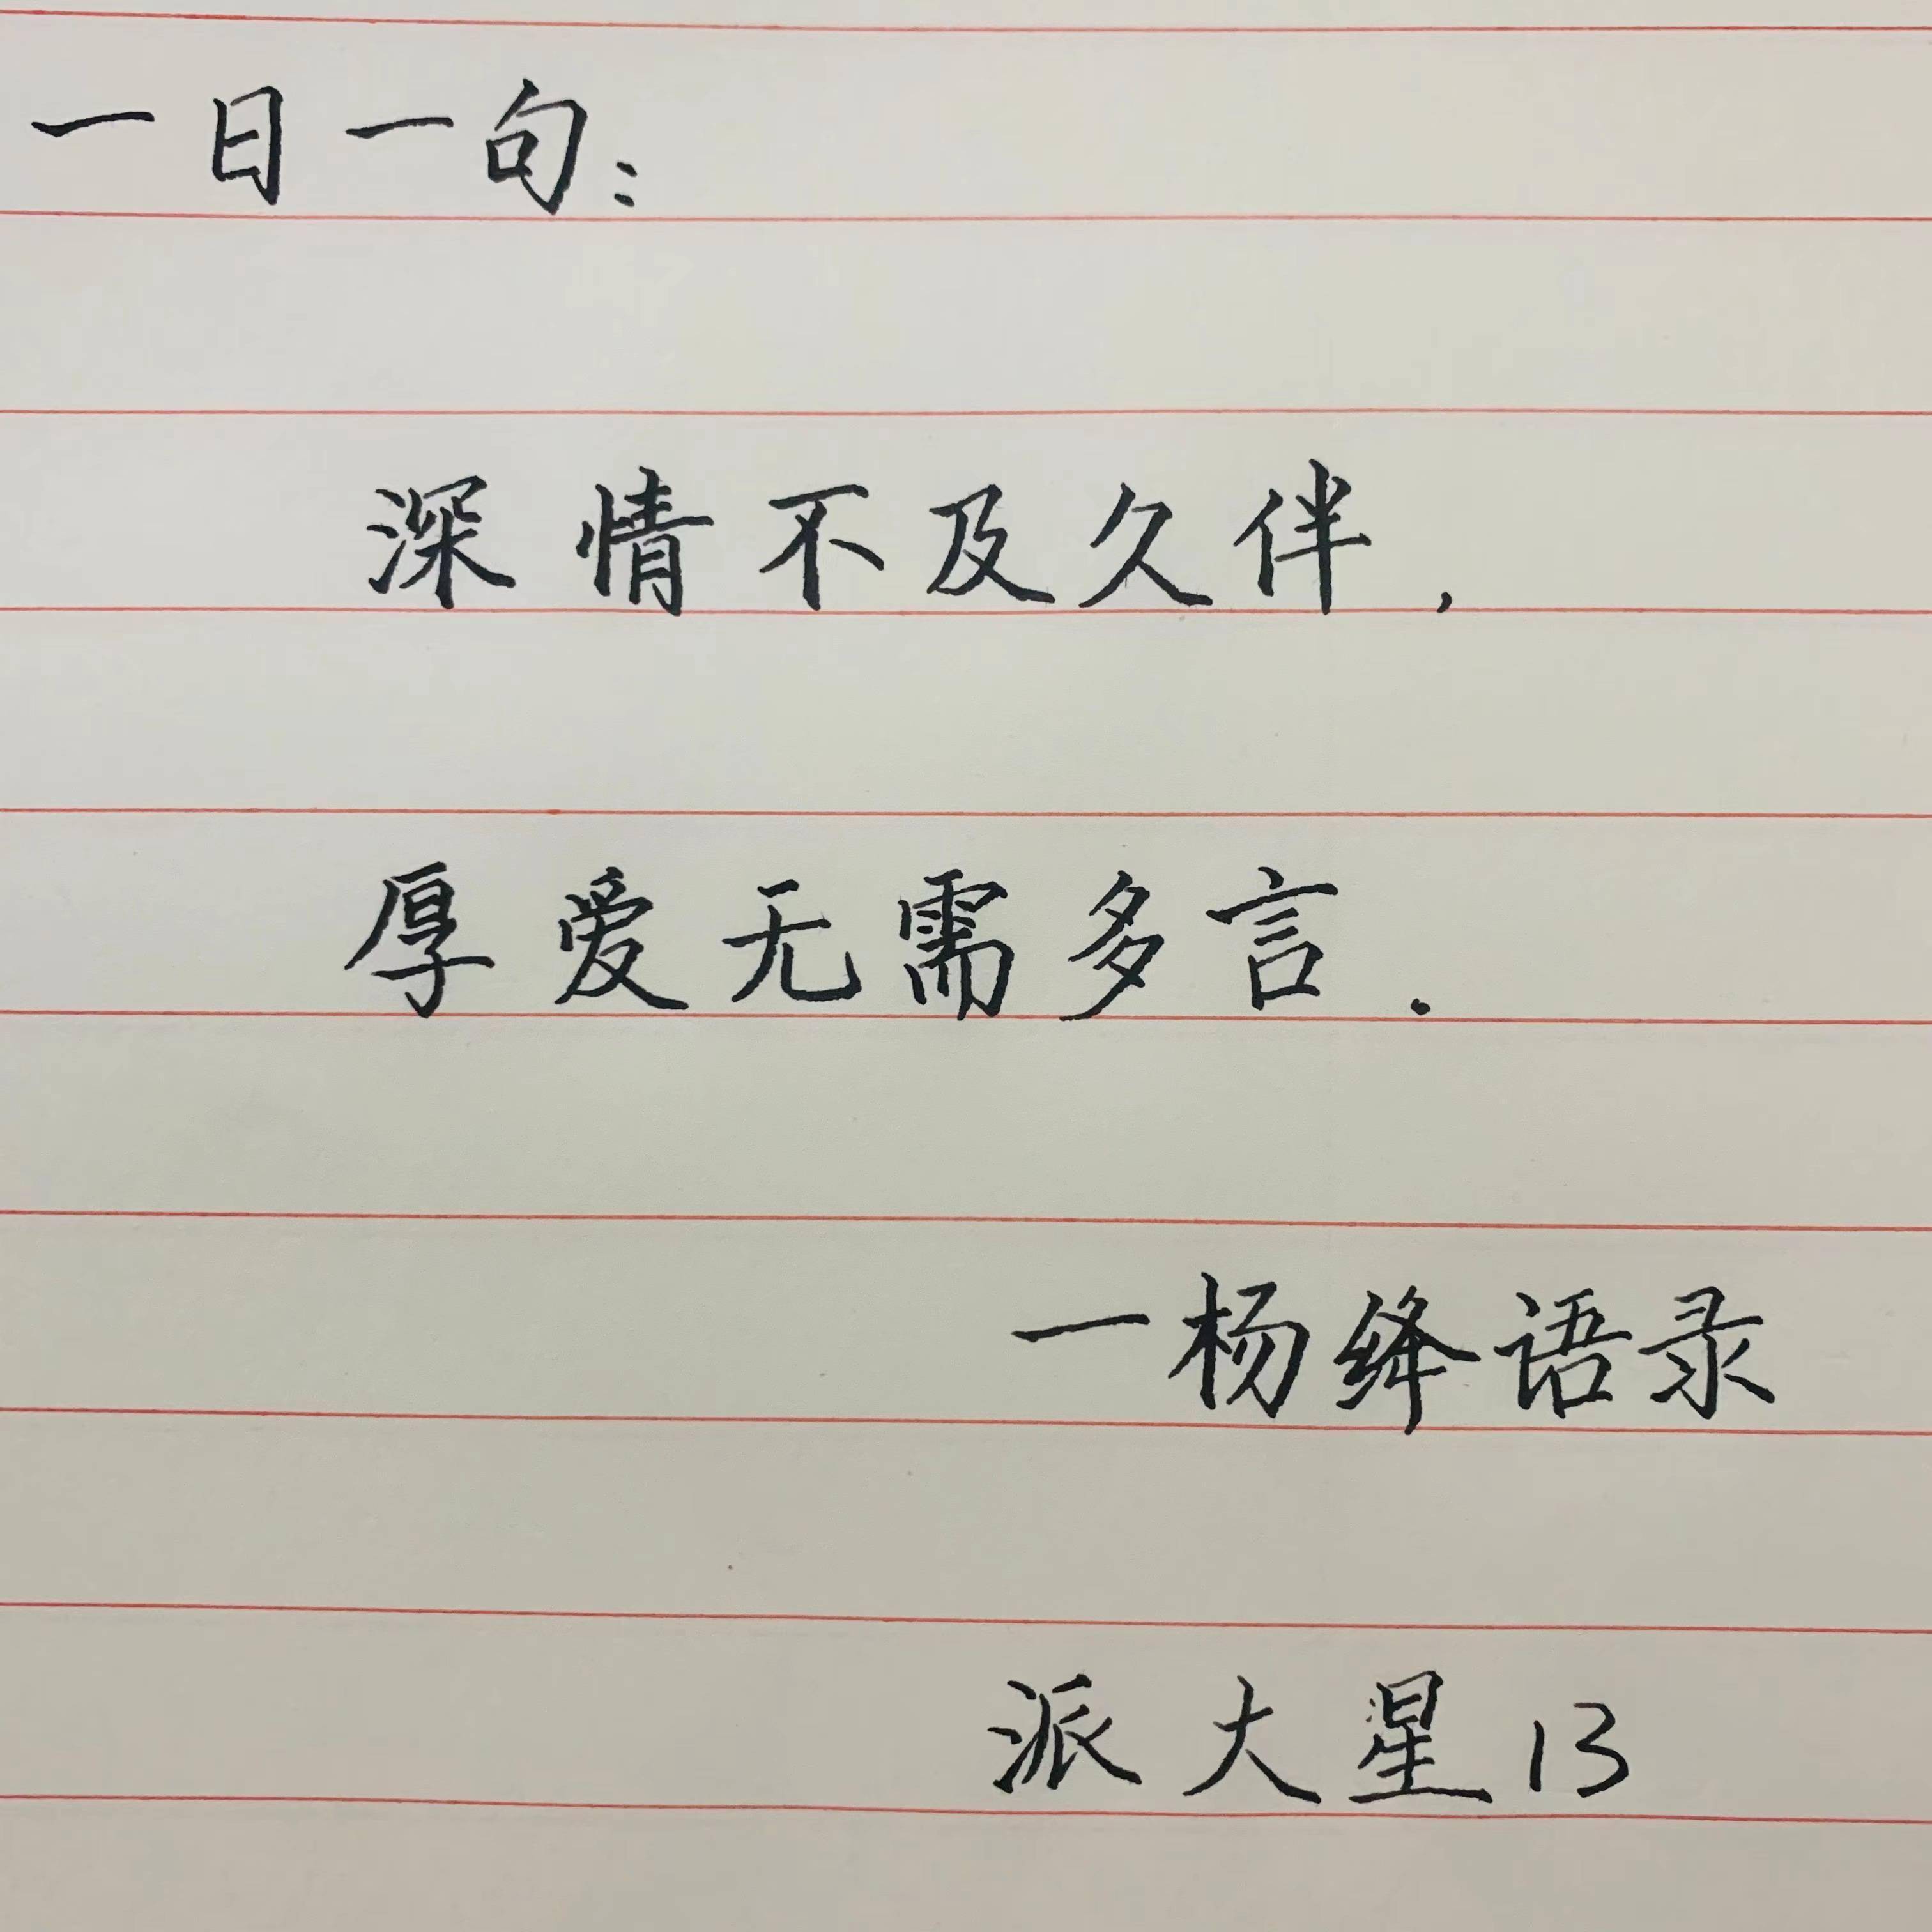 一日一句:
深情不及久伴,
厚爱无需多言.
一杨绛语录
派大星13